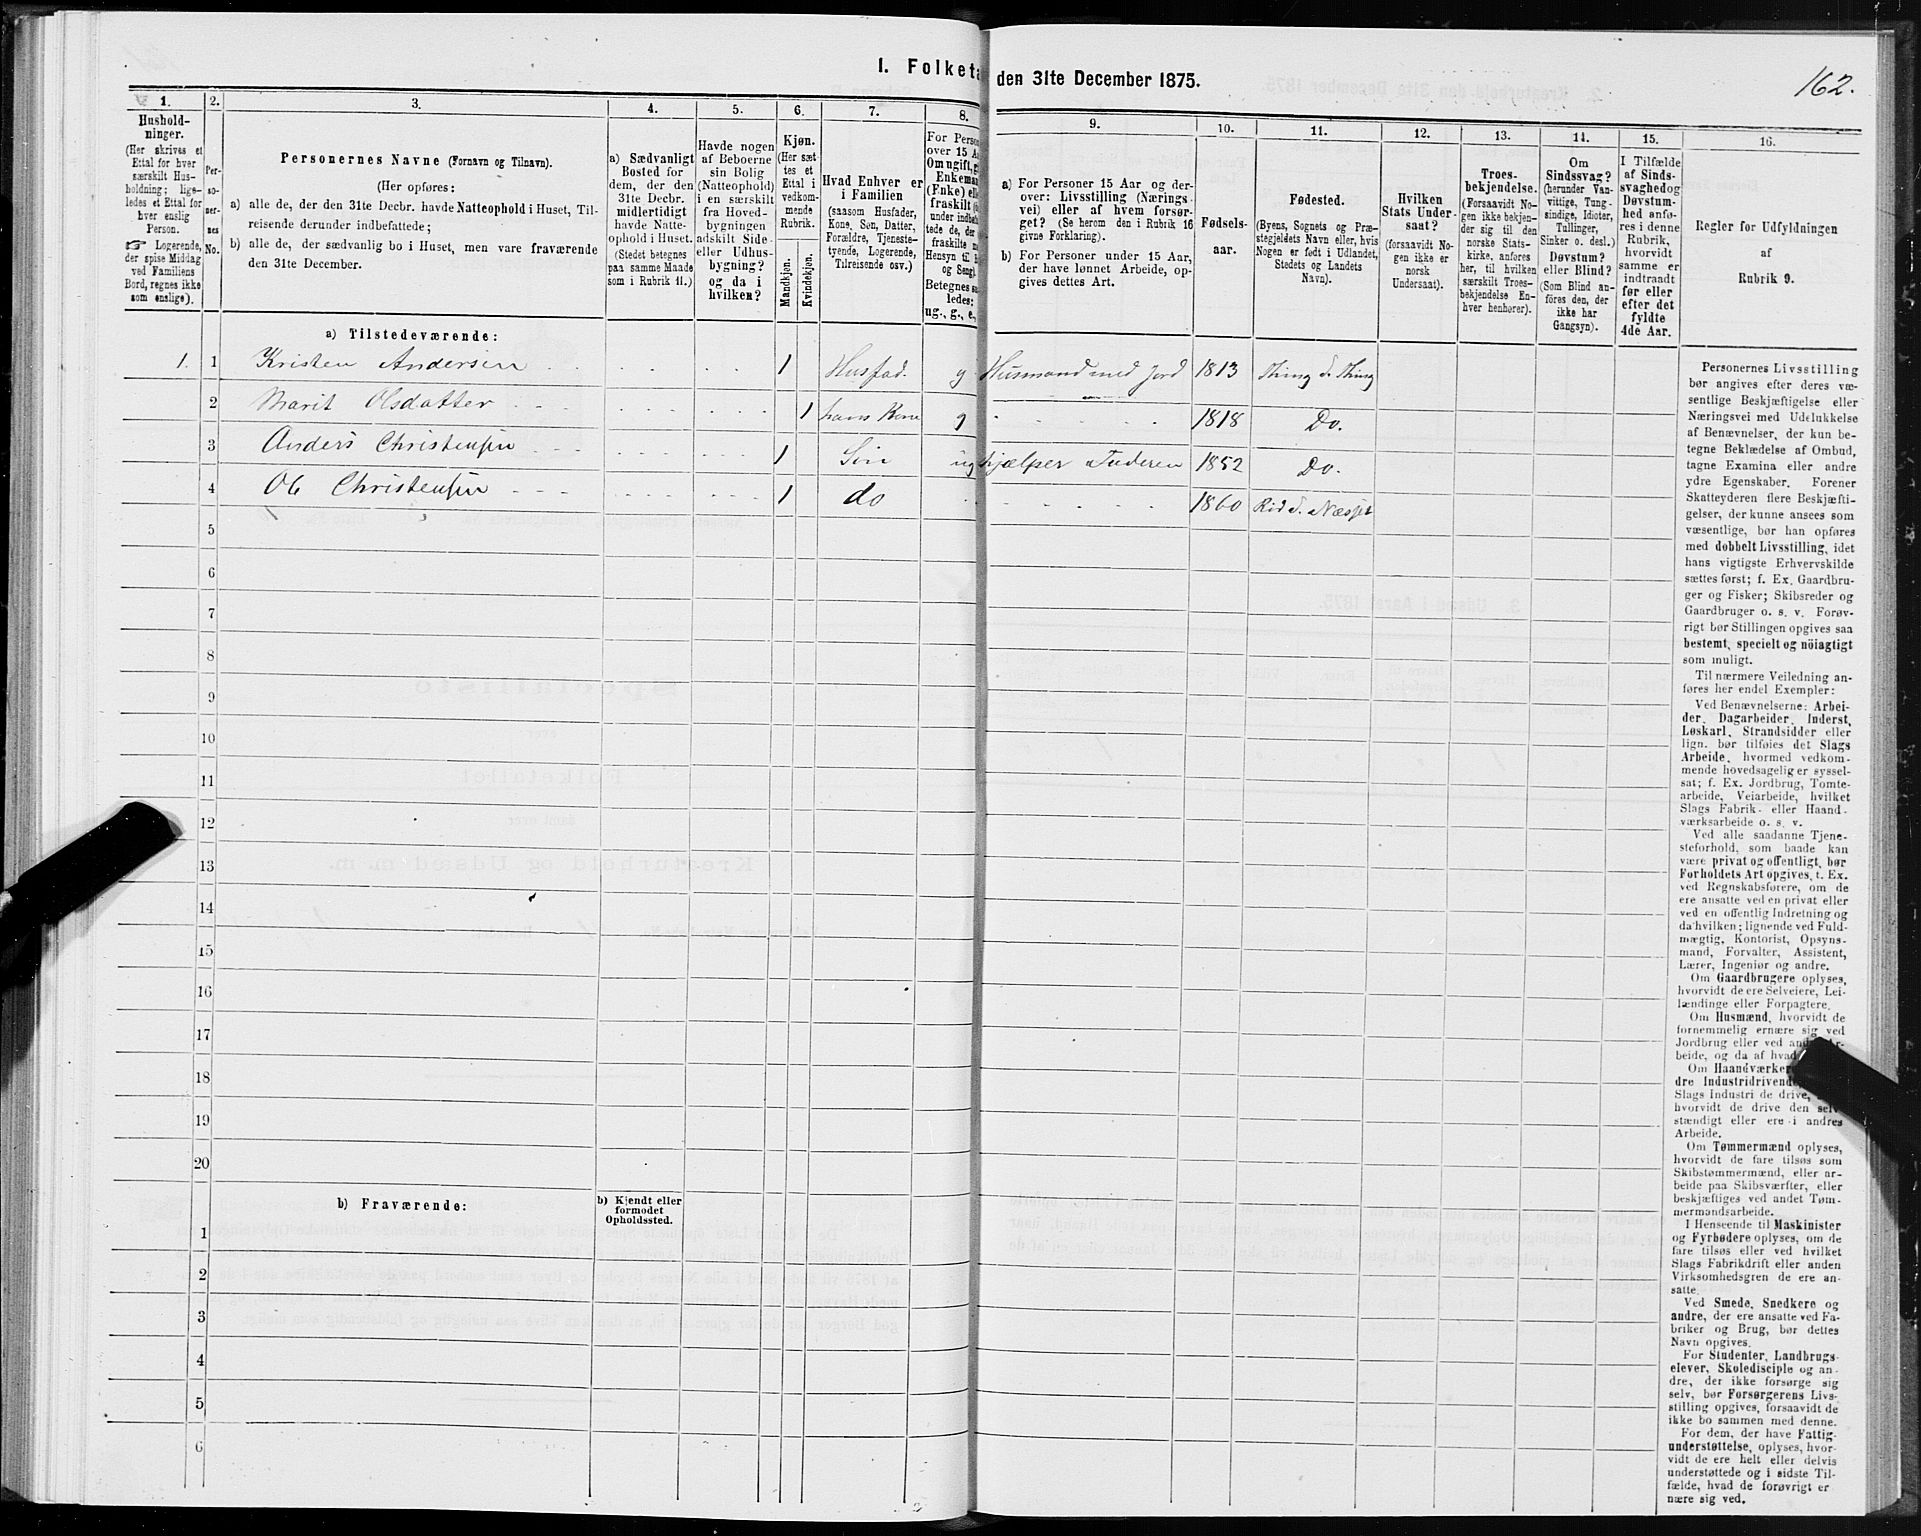 I. Folketa
den 31te December 1875.
162.
1.
Hushold-
ninger.
(Her skrives et
Ettal for hver
særskilt Hus-
holdning; lige-
ledes et Ettal for
hver enslig
Person.
☞ Logerende,
der spise Middag
ved Familiens
Bord, regnes ikke
som enslige).
2.
Per-
so-
ner-
nes
No.
3.
Personernes Navne (Fornavn og Tilnavn).
(Her opføres:
a) alle de, der den 31te Decbr. havde Natteophold i Huset, Til-
reisende derunder indbefattede;
b) alle de, der sædvanlig bo i Huset, men vare fraværende
den 31te December.
4.
a) Sædvanligt
Bosted for
dem, der den
31te Decbr.
midlertidigt
havde Natte-
ophold i Huset.
(Stedet betegnes
paa samme Maade
som i Rubrik 11.)
5.
Havde nogen
af Beboerne
sin Bolig
(Natteophold)
i en særskilt
fra Hoved-
bygningen
adskilt Side-
eller Udhus-
bygning?
og da i
hvilken?
6.
Kjøn.
(Her sæt-
tes et
Ettal i
vedkom-
mende
Rubrik.
Mandkjøn.
Kvindekjøn.
7.
Hvad Enhver er
i Familien
(saasom Husfader,
Kone, Søn, Datter,
Forældre, Tjeneste-
tyende, Logerende,
Tilreisende osv.)
8.
For Person
over 15 A
Om ugift, g
Enkeman
(Fnke) ell
fraskilt (
under indbe
tede de, der
fraskilte
Hensyn til
og Seng).
Betegnes sa
ledes:
ug., g., e.,
9.
a) For Personer 15 Aar og der-
over: Livsstilling (Nærings-
vei) eller af hvem forsør-
get? (Se herom den i Rubrik 16
givne Forklaring).
b) For Personer under 15 Aar,
der have lønnet Arbeide, op-
gives dettes Art.
10.
Fødsels-
aar.
11.
Fødested.
(Byens, Sognets og Præ-
stegjeldets Navn eller, hvis
Nogen er født i Udlandet,
Stedets og Landets
Navn).
12.
Hvilken
Stats Under-
saat?
(forsaavidt No-
gen ikke er
norsk
Undersaat).
13.
Troes-
bekjendelse.
(Forsaavidt No-
gen ikke bekjen-
der sig til den
norske Stats-
kirke, anføres
her, til hvilken
særskilt Troes-
bekjendelse En-
hver henhører).
14.
Om
Sindssvag?
(herunder Van-
vittige, Tung-
sindige, Idioter,
Tullinger,
Sinker o. desl.)
Døvstum?
eller Blind?
(Som Blind an-
føres den, der
ikke har
Gangsyn).
15.
I Tilfælde
af Sinds-
svaghed og
Døvstum-
hed anfø-
res i denne
Rubrik,
hvorvidt
samme er
indtraadt
før eller
efter det
fyldte
4de Aar.
16.
Regler for Udfyldningen
af
Rubrik 9.
a) Tilstedeværende:
1. 1 Kristen Andersen 1 Husfad. g. Husmand med Jord 1813 Thing S. Thing
2 Marit Olsdatter 1 hans Kone g 1818 Do.
3 Anders Christensen 1 Sön ug hjælper Faderen 1852 Do.
4 Ole Christensen 1 do 1860 S. Næsset
5
6
7
8
9
10
11
12
13
14
15
16
17
18
19
20
b) Fraværende:
b) Kjendt eller
formodet
Opholdssted.
1
2
3
4
5
6
Personernes Livsstilling
bør angives efter deres væ-
sentlige Beskjæftigelse eller
Næringsvei med Udelukkelse
af Benævnelser, der kun be-
tegne Beklædelse af Ombud,
tagne Examina eller andre
ydre Egenskaber. Forener
Skatteyderen flere Beskjæfti-
gelser, der kunne ansees som
væsentlige, bør han opføres
med dobbelt Livsstilling, idet
hans vigtigste Erhvervskilde
sættes først; f. Ex. Gaardbru-
ger og Fisker; Skibsreder og
Gaardbruger o. s. v. Forøv-
rigt bør Stillingen opgives saa
bestemt, specielt og nöiagtigt
som muligt.
Til nærmere Veiledning an-
føres her endel Exempler:
Ved Benævnelserne: Arbei-
der, Dagarbeider, Inderst,
Løskarl, Strandsidder eller
lign. bør tilføies det Slags
Arbeide, hvormed vedkom-
mende hovedsagelig er syssel-
sat; f. Ex. Jordbrug, Tomte-
arbeide, Veiarbeide, hvilket
Slags Fabrik- eller Haand-
værksarbeide o. s. v.
Ved alle saadanne Tjene-
steforhold, som baade kan
være privat og offentligt, bør
Forholdets Art opgives, t. Ex.
ved Regnskabsførere, om de
ere ansatte ved en privat eller
ved en offentlig Indretning og
da hvilken; lignende ved Fuld-
mægtig, Kontorist, Opsyns-
mand, Forvalter, Assistent,
Lærer, Ingeniør og andre.
Om Gaardbrugere oplyses,
hvorvidt de ere Selveiere, Lei-
lændinge eller Forpagtere.
Om Husmænd, hvorvidt de
fornemmelig ernære sig ved
Jordbrug eller ved and r-
beide, og da af hvad
Om Haandværker
dre Industridrivend
Slags Industri de drive,
hvorvidt de drive den selv-
stændigt eller ere i andres
Arbeide.
Om Tømmermænd oplyses,
hvorvidt de fare tilsøs som
Skibstømmermænd, eller ar-
beide paa Skibsværfter, eller
beskjæftiges ved andet Tøm-
mermandsarbeide.
I Henseende til Maskinister
og Fyrbødere oplyses, om de
fare tilsøs eller ved hvilket
Slags Fabrikdrift eller anden
Virksomhedsgren de ere an-
satte.
Ved Smede, Snedkere og
andre, der ere ansatte ved Fa-
briker og Brug, bør dettes
Navn opgives.
For Studenter, Landbrugs-
elever, Skoledisciple og an-
dre, der ikke forsørge sig
selv, bør Forsørgerens Livs-
stilling opgives, forsaavidt de
ikke bo sammen med denne.
For dem, der have Fattig-
understøttelse, oplyses, hvor-
vidt de ere helt eller delvis
understøttede og i sidste Til-
fælde, hvad de forøvrigt er
nære sig ved.